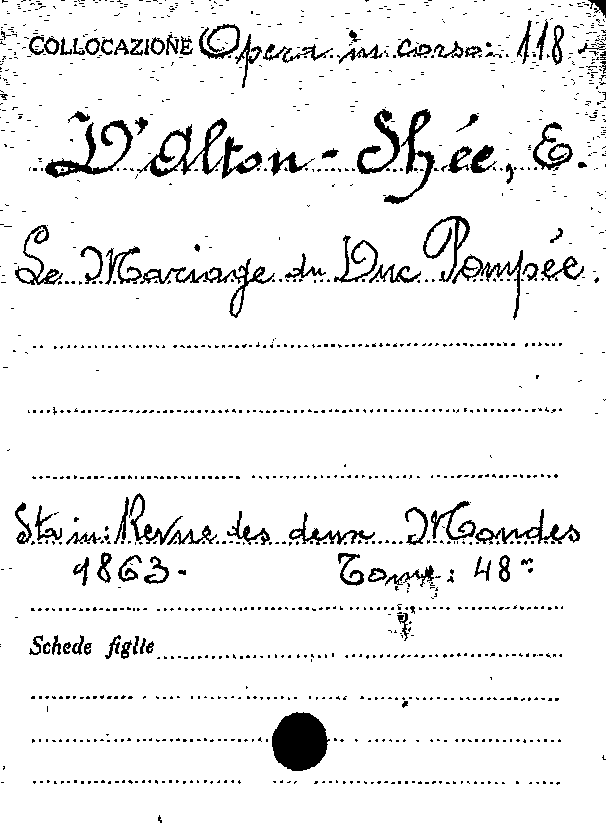 COLLOCAZIONE Opera in corso: 118.
D'Alton-Shée, E.
Le Mariage du Duc Pompée.
Sta in: Revue des deux Mondes
1863. Tome: 48
Schede figlie